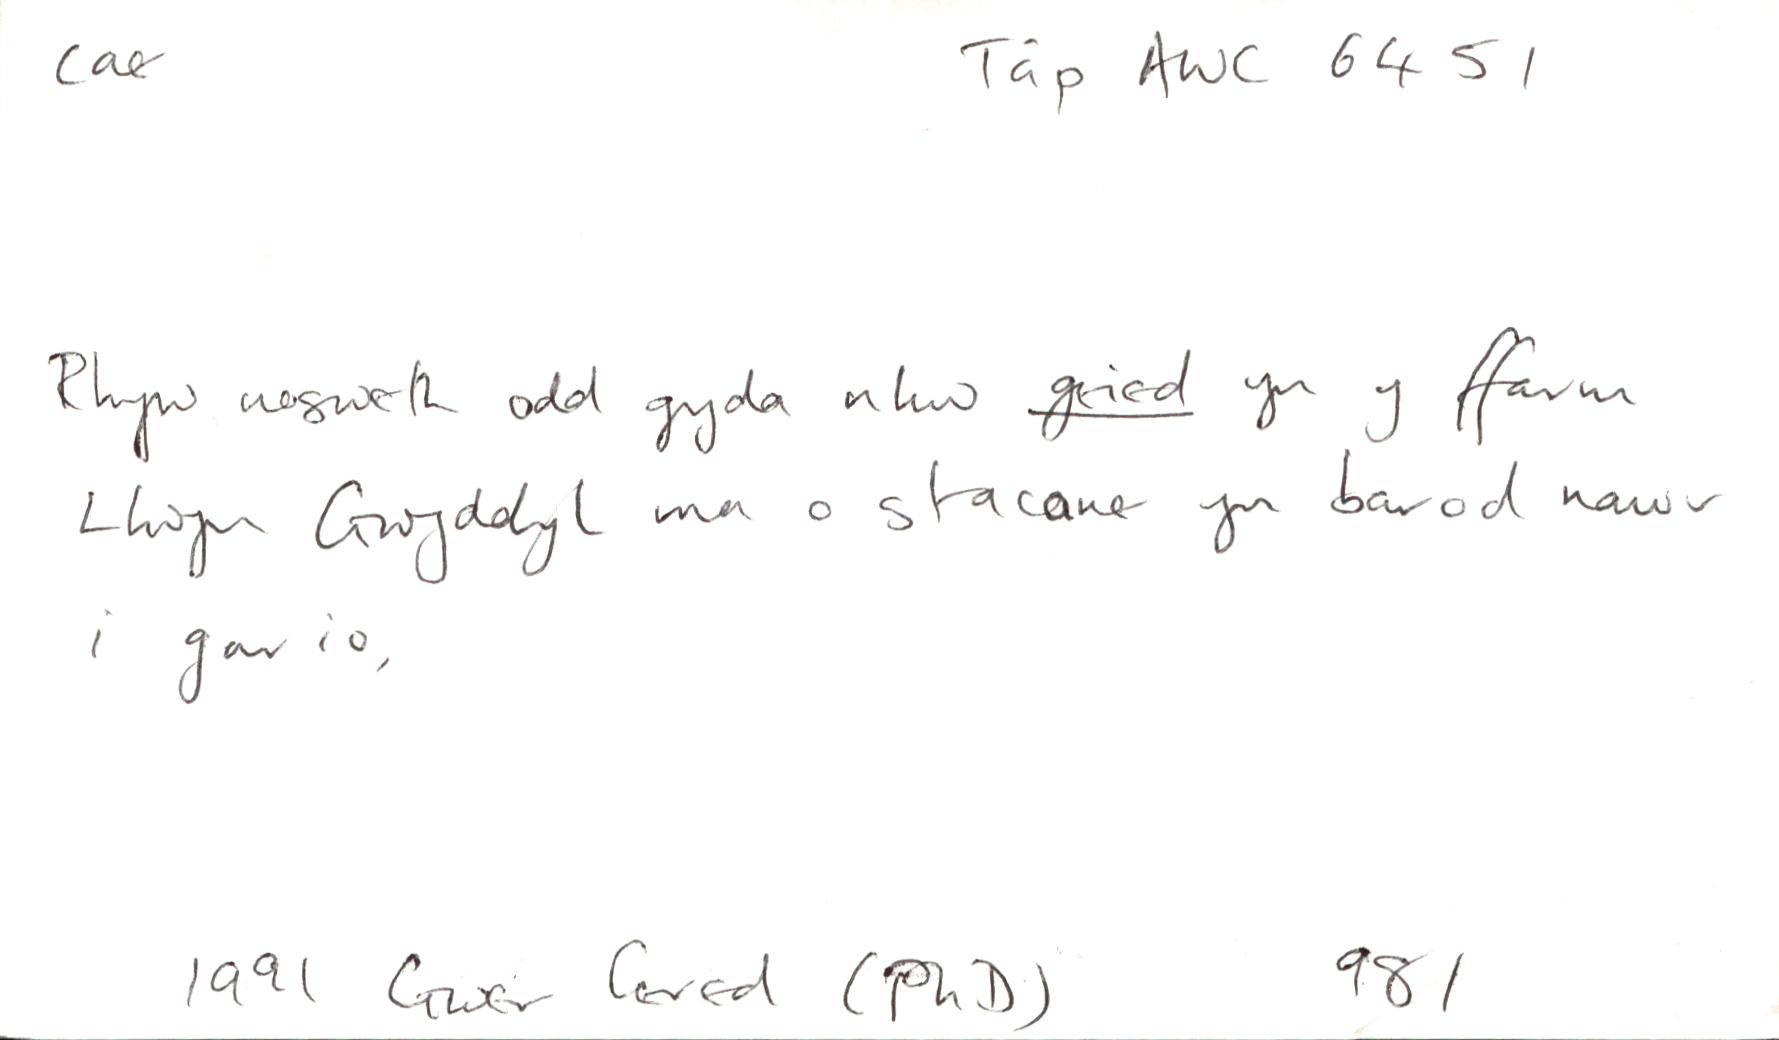 cae Tâp AWC 6451
Rhyw nosweth odd gyda nhw gried yn y ffarm
Llwyn Gwyddyl ma o stacane yn barod nawr
i gario,
1991 GwEr Cered (PhD) 981